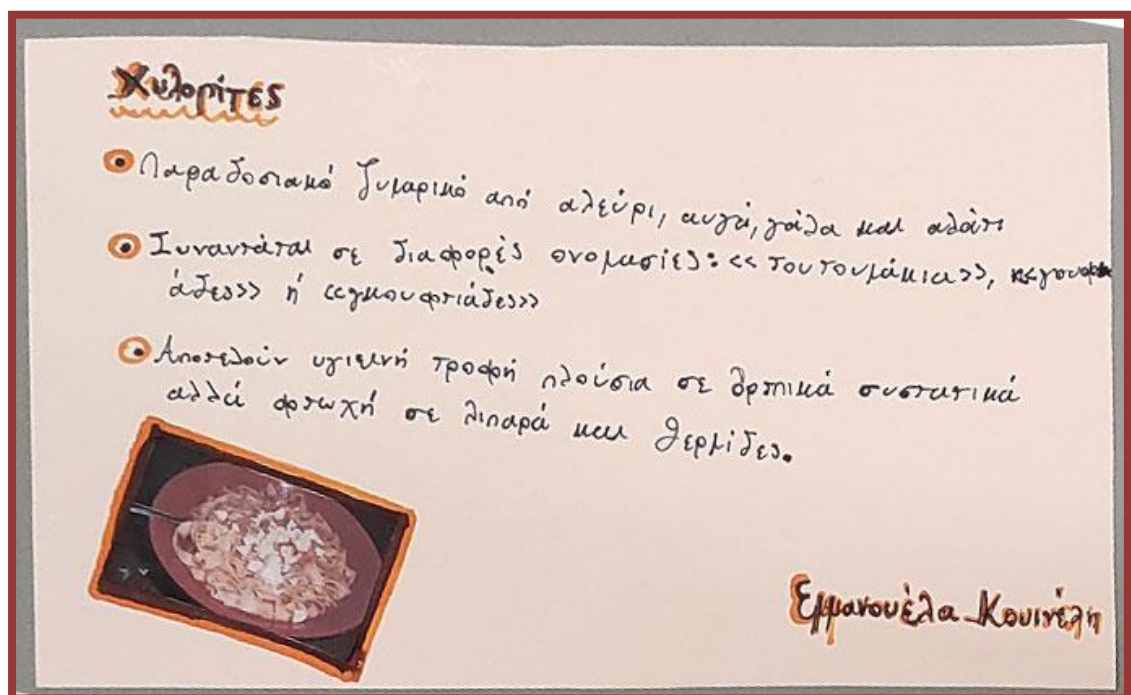 Χυλοπίτες
Παραδοσιακό ζυμαρικό από αλεύρι, αυγά, γάλα και αλάτι
Συναντάται σε διαφορές ονομασίες: «τουτουμάκια»,
άδες» ή «γκουφτιάδες»
Αποτελούν υγιεινή τροφή πλούσια σε θρπικά συστατικά
αλλά φτωχή σε λιπαρά και θερμίδες.
Εμμανουέλα Κουινέλη